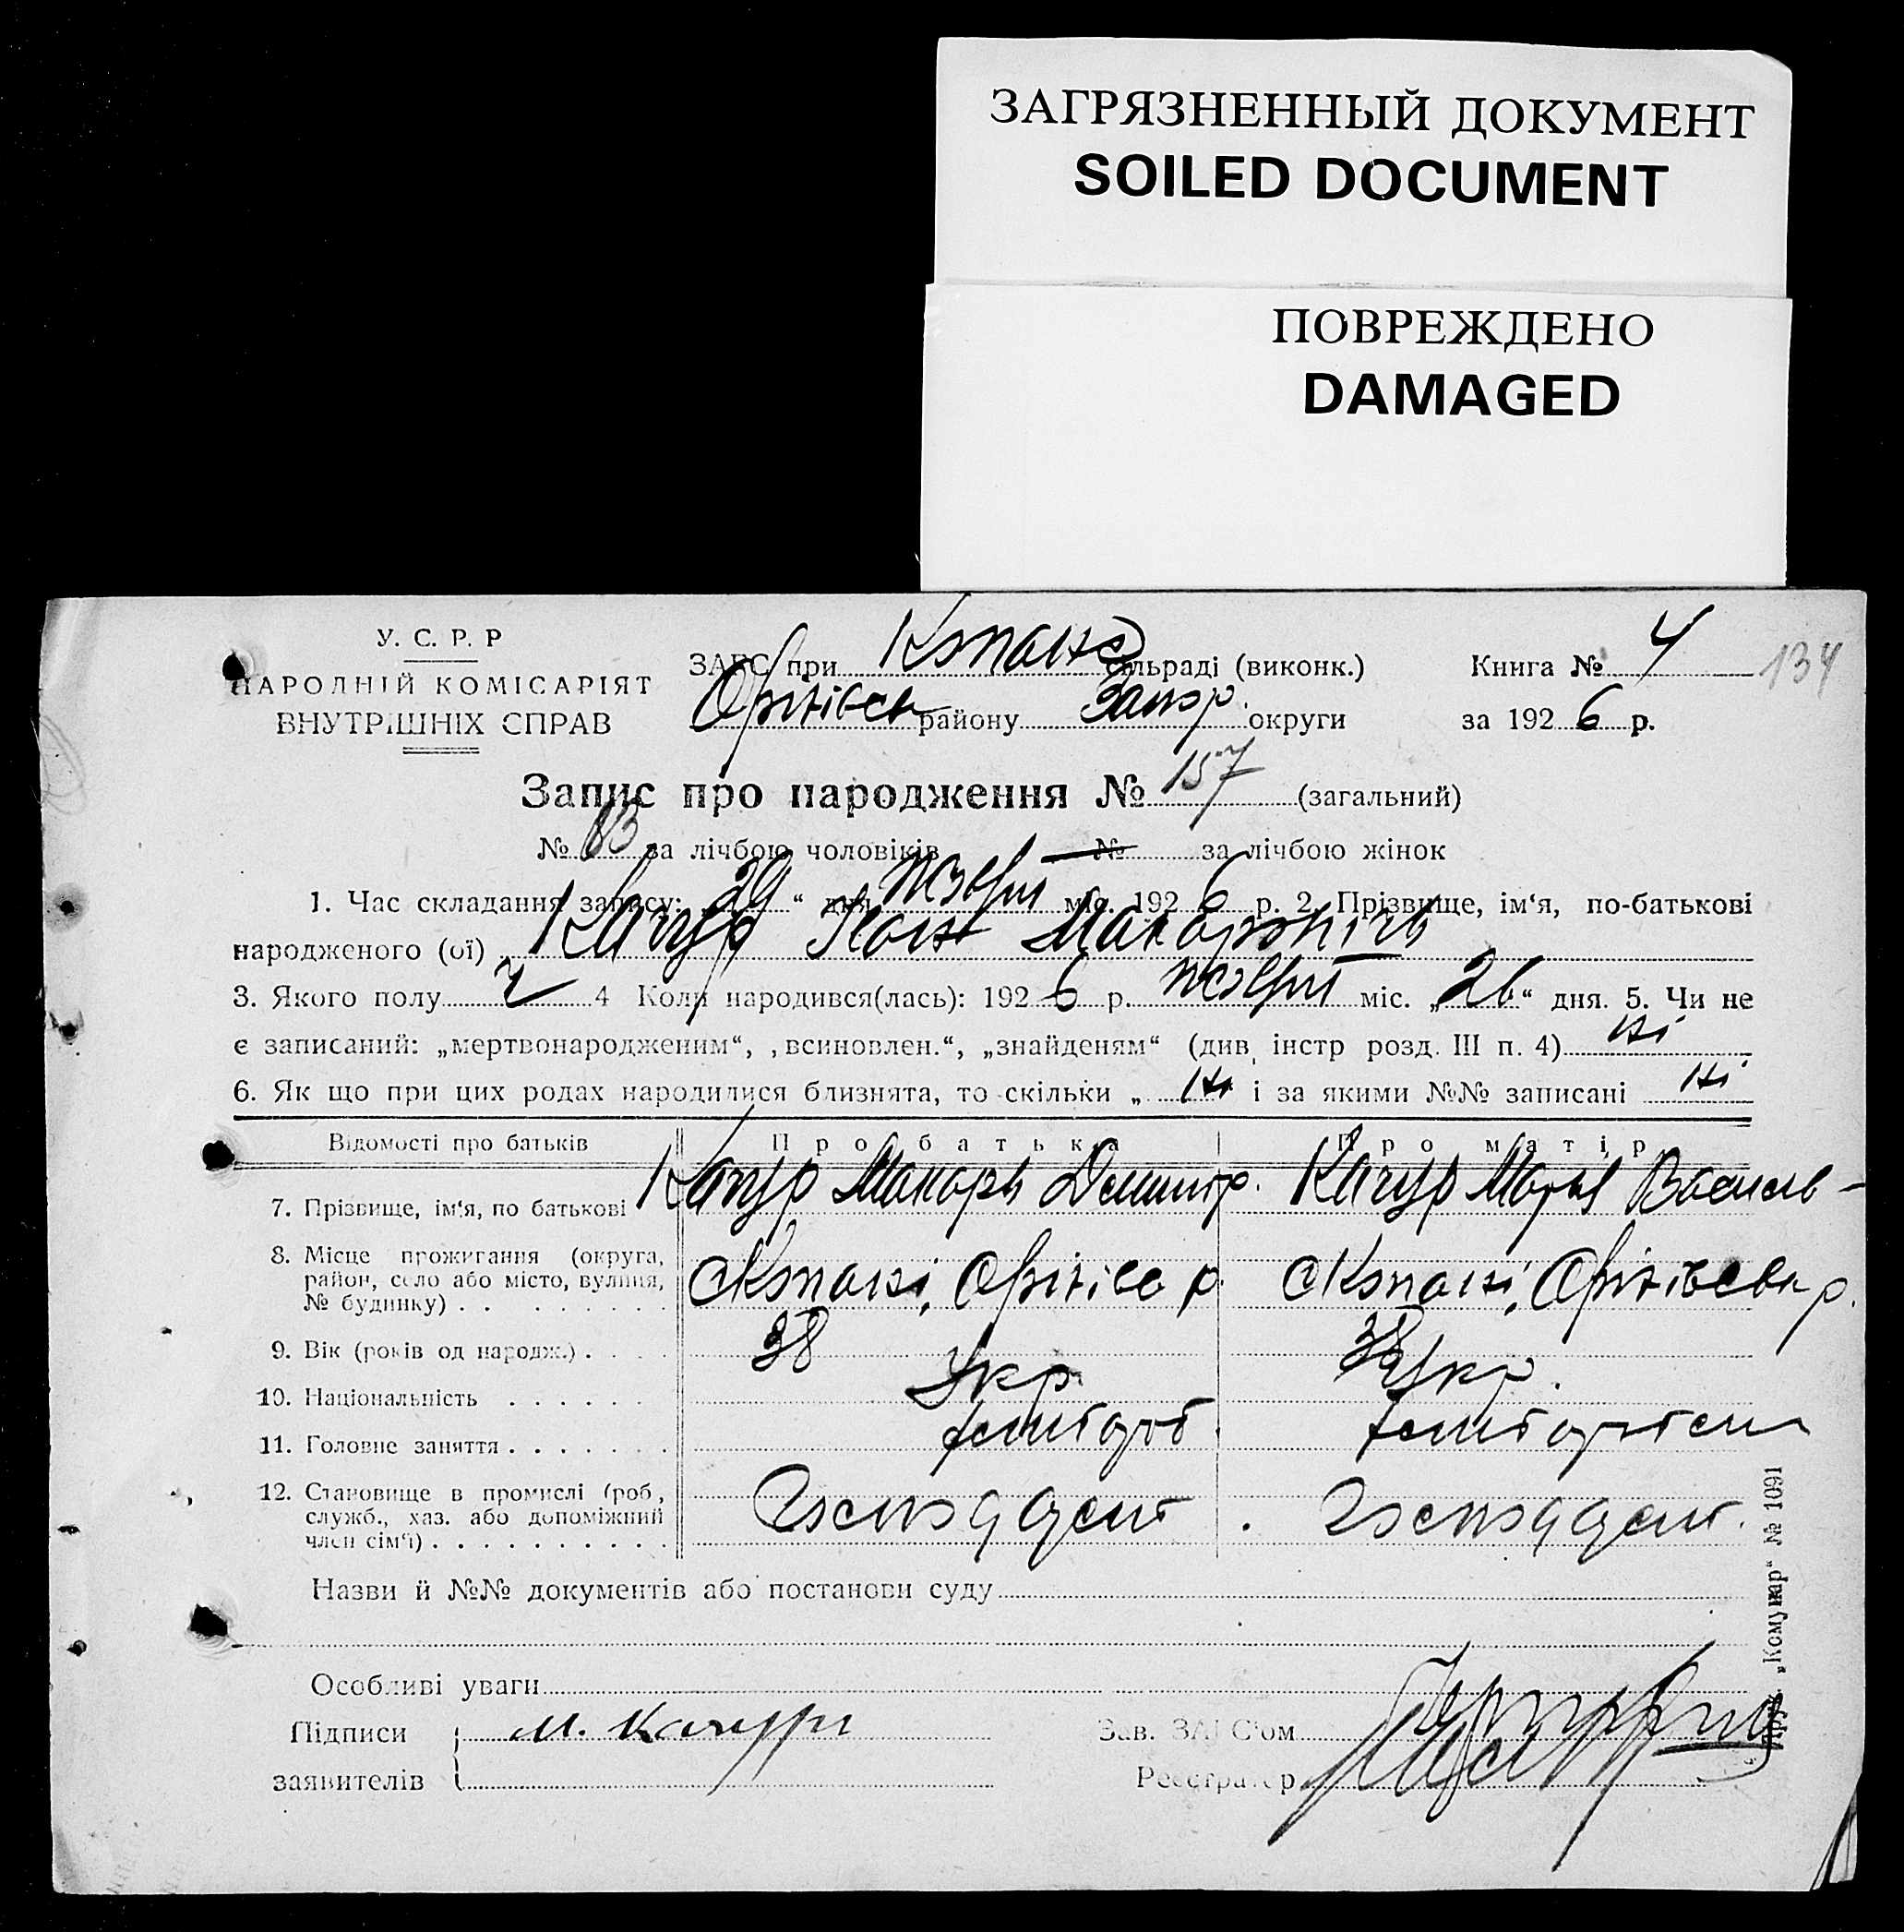 ЗАГРЯЗНЕННЫЙ ДОКУМЕНТ
SOILED DOCUMENT
ПОВРЕЖДЕНО
DAMAGED
У. С. Р. Р
НАРОДНІЙ КОМІСАРІЯТ
ВНУТРІШНІХ СПРАВ
ЗАГС при Копано сільраді (виконк.)
Оріхівськ району Запор. округи
Книга № 4
134
за 1926 р.
Запис про народження № 157 (загальний)
№ 83 за лічбою чоловіків № за лічбою жінок
1. Час складання запису: „29“ дня жовтн міс. 1926 р. 2. Прізвище, ім‘я, по-батькові
народженого (ої) Качур Іван Макарович
3. Якого полу ч 4 Коли народився(лась): 1926 р. жовтн міс. „26“ дня. 5. Чи не
є записаний: „мертвонародженим“, „всиновлен.“, „знайденям“ (див. інстр розд. III п. 4) ні
6. Як що при цих родах народилися близнята, то скільки „ ні і за якими №№ записані ні
Відомості про батьків Про батька Про матір
7. Прізвище, ім‘я, по батькові Качур Макарь Дмитр. Качур Марія Василь-
8. Місце прожигання (округа, район, село або місто, вулиця, № будинку) . . с Копані, Оріхівс р с Копані, Оріхівськ р.
9. Вік (років од народж.) . 38 38
10. Національність Укр Укр.
11. Головне заняття хлібороб. хлібороб
12. Становище в промислі (роб, служб., хаз. або допоміжний член сім‘ї)
Назви й №№ документів або постанови суду
Особливі уваги
Підписи М. Качур Зав. ЗАГС‘ом
заявителів Реєстратор
Друк. „Комунар“ № 1091